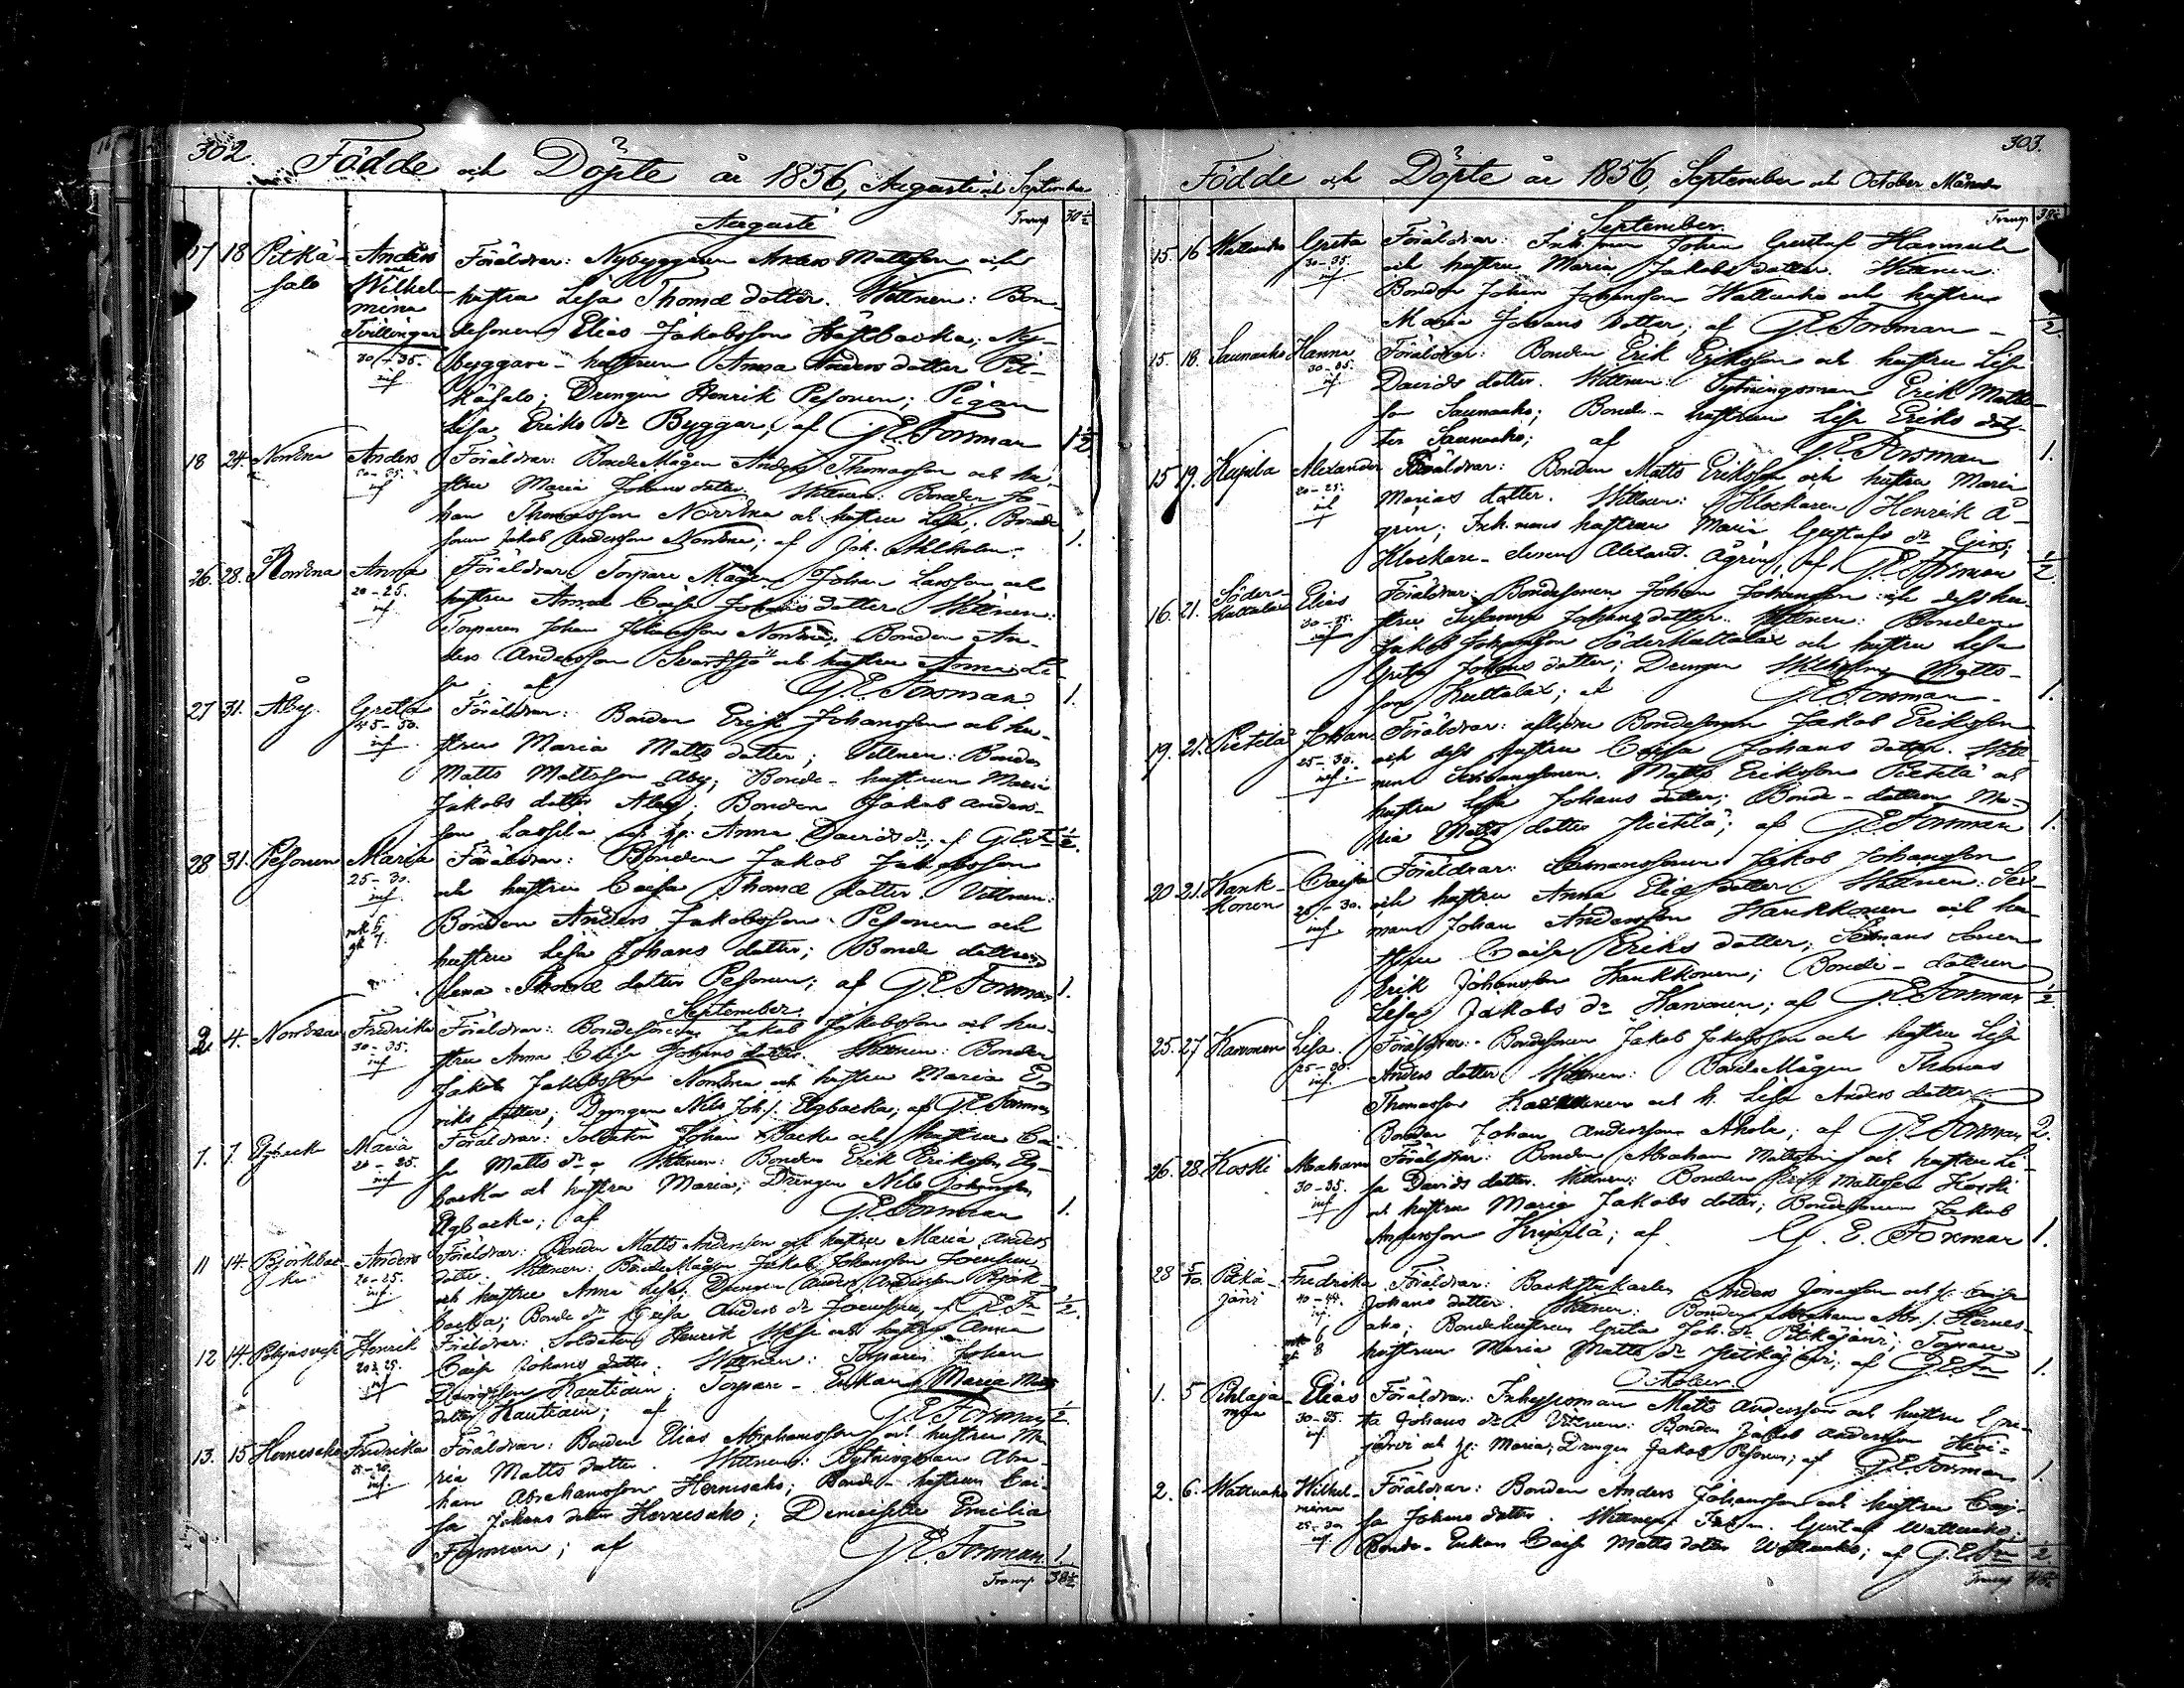 302.
Födde och Döpte år 1856, Augusti och September
Augusti
Transp 30½
17 18 Pitkä- Anders Föräldrar: Nybyggaren Anders Mattsson och
salo och Wilhel- hustru Lisa Thomæ dotter. Wittnen: Bon-
mina
Tvillingar desonen Elias Jakobsson Hästbacka; Ny-
30-35. byggare-hustrun Anna Anders dotter Pit-
inf käsalo; Drengen Henrik Pesonen; Pigan
Lisa Eriks dr Byggar; af G. E. Forsman 1½
18 24. Norrena Anders Föräldrar: BondeMågen Anders Thomasson och hu-
inf stru Maria Johans dotter. Wittnen: Bonden Jo-
han Thomasson Norrena och hustru Lisa. Bonde
sonen Jakob Andersson Norrena; af Joh. Ahlholm. 1.
26. 28. Norrena Anna Föräldrar: Torpare Mågen Johan Larsson och
20-25. hustru Anna Caisa Johans dotter Wittnen:
inf. Torparen Johan Johansson Norrena; Bonden An-
ders Andersson Svartsjö och hustru Anna Li-
sa af G. E. Forsman. 1.
27 31. Åby. Greta Föräldrar: Bonden Erik Johansson och hu-
45-50. stru Maria Matts dotter; Wittnen: Bonden
inf. Matts Mattsson Åby; Bonde-hustrun Maria
Jakobs dotter Åby; Bonden Jakob Anders-
son Lassila och h: Anna Davids dr; af G. E. Fn ½.
28 31. Pesonen Maria Föräldrar: Bonden Jakob Jakobsson
25-30. och hustru Caisa Thomæ dotter. Vittnen:
inf. Bonden Anders Jakobsson Pesonen och
hustru Lisa Johans dotter; Bonde dottren
Lena Thomæ dotter Pesonen; af G. E. Forsman 1.
September.
2. 4. Norrena Fredrika Föräldrar: Bondesonen Jakob Jakobsson och hu-
30-35. stru Anna Caisa Johans dotter. Wittnen: Bonden
inf Jakob Jakobsson Norrena och hustru Maria E-
riks dotter; Drengen Nils Joh.s. Elgbacka; af G. E. Forsman
7. 7. Elgbacka Maria Föräldrar: Soldaten Johan Backe och hustru Cai-
20-25. sa Matts dr. Wittnen: Bonden Erik Eriksson Elg-
inf backa och hustru Maria; Drengen Nils Johansson
Elgbacka; af G. E. Forsman 1.
11 14. Björkbac- Anders Föräldrar: Bonden Matts Andersson och hustru Maria Anders
ka 20-25. dotter. Wittnen: BondeMågen Jakob Johansson
inf. och hustru Anna Lisa; Drengen Anders Andersson Björk-
backa; Bonde dr Caisa Anders dr af G. E. Fn ½.
12 14. Henrik Föräldrar: Soldaten Henrik och hustru Anna
20-25. Caisa Johans dotter. Wittnen: Torparen Johan
inf Davidsson Kautiain; Torpare-Enkan Maria Matts
dotter Kautiain; af G. E. Forsman ½.
13. 15 Hernesaho Fredrika Föräldrar: Bonden Elias Abrahamsson och hustru Ma-
inf. ria Matts dotter. Wittnen: Sytningsman Abra-
ham Abrahamsson Hernesaho; Bonde-hustrun Cai-
sa Johans dotter Hernesaho; Demoiselle Emilia
Forsman; af G. E. Forsman. 1.
Transp 38½
303.
Födde och Döpte år 1856, September och October Månader
September.
Transp 38½
15. 16 Wattuaho Greta Föräldrar: Inh.sman Johan Gustaf
30-35. och hustru Maria Jakobs dotter. Wittnen:
inf. Bonden Johan Johansson Wattuaho och hustru
Maria Johans dotter; af G. E. Forsman ½
15. 18. Saunaaho Hanna Föräldrar: Bonden Erik Eriksson och hustru Lisa
30-35. Davids dotter. Wittnen: Sytningsman Erik Matts-
inf son Saunaaho; Bonde-hustrun Lisa Eriks dot-
ter Saunaaho; af G. E. Forsman 1.
15 19. Kujala Alexander Föräldrar: Bonden Matts Eriksson och hustru Maria
20-25. Marias dotter. Wittnen: Klockaren Henrik Å-
inf gren; Inh.mans hustrun Maria Gustafs dr
Klockare-sonen Alexand. Ågren; af G. E. Forsman ½
16. 21. Söder- Elias Föräldrar: Bondesonen Johan Johansson och dess hu-
Kattelax stru Susanna Johans dotter. Wittnen: Bonden
inf Jakob Johansson SöderKattelax och hustru Lisa
Greta Johans dotter; Drengen Wilhelm Matts-
son Kattelax; af G. E. Forsman 1.
19. 21. Pietilä Johan Föräldrar: aflidne Bondesonen Jakob Eriksson
25-30. och dess hustru Caisa Johans dotter. Witt-
inf. nen Matts Eriksson Pietilä och
hustru Lisa Johans dotter; Bonde-dottren Ma-
ria Matts dotter Pietilä; af G. E. Forsman 1.
20 21. Kank- Caisa Föräldrar: Sexmanssonen Jakob Johansson
konen 25-30. och hustru Anna Elias dotter Wittnen: Sex-
inf. man Johan Andersson Kankkonen och hu-
stru Caisa Eriks dotter; Sexmans sonen
Erik Johansson Kankkonen; Bonde-dottren
Lisa Jakobs dr Karvonen; af G. E. Forsman ½
25. 27 Karvonen Lisa. Föräldrar: Bondesonen Jakob Jakobsson och hustru Lisa
inf. Anders dotter Wittnen: BondeMågen Thomas
Thomasson Karvonen och h. Lisa Anders dotter;
Bonden Johan Andersson Ahola; af G. E. Forsman 2.
26. 28. Koski Abraham Föräldrar: Bonden Abraham Mattsson och hustru Li-
30-35. sa Davids dotter. Wittnen: Bonden Erik Mattsson Koski
inf och hustru Maria Jakobs dotter; Bondesonen Jakob
Andersson Knipilä; af G. E. Forsman 1.
28 5/10. Pitkä- Fredrika Föräldrar: Backstukarlen Anders Jonasson och h: Caisa
järvi Johans dotter. Wittnen: Bonden Abraham Abr.s. Hernes-
inf. aho; Bondehustrun Greta Joh. dr Pitkäjärvi; Torpare-
hustrun Maria Matts dr Pitkäjärvi; af G. E. Fn 1.
October
1. 5 Pihlaja- Elias Föräldrar: Inhysesman Matts Andersson och hustru Gre-
30-35. ta Johans dr. Vittnen: Bonden Jakob Andersson Kivi-
inf. järvi och h: Maria; Drengen Jakob Pesonen; af G. E. Forsman 1.
2. 6. Wattuaho Wilhel- Föräldrar: Bonden Anders Johansson och hustru Cai-
mina sa Johans dotter. Wittnen: Inh.m. Gustaf Wattuaho;
25-30 inf. Bonde-Enkan Caisa Matts dotter Wattuaho; af G. E. Fn ½
Transp